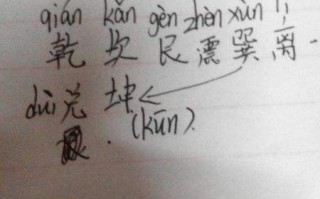 qián kǎn gèn zhèn xùn lí
乾 坎 艮 震 巽 离.
duì 兑 坤
(kūn).